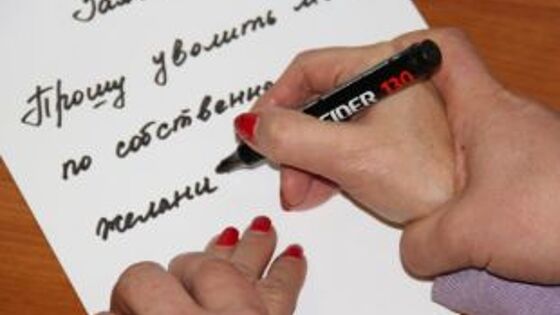 Прошу уволить ме
по собственно
желани
EIDER 130